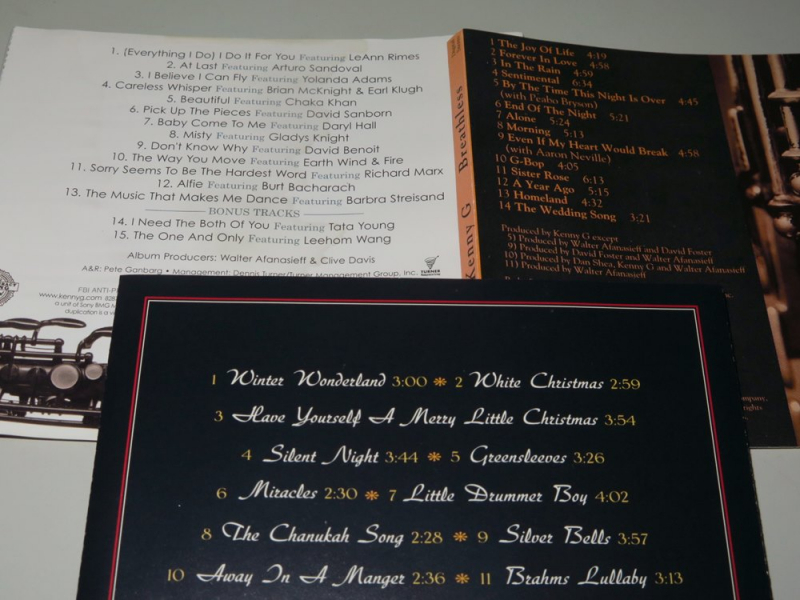 1. (Everything I Do) I Do It For You Featuring LeAnn Rimes
2. At Last Featuring Arturo Sandoval
3. I Believe I Can Fly Featuring Yolanda Adams
4. Careless Whisper Featuring Brian McKnight & Earl Klugh
5. Beautiful Featuring Chaka Khan
6. Pick Up The Pieces Featuring David Sanborn
7. Baby Come To Me Featuring Daryl Hall
8. Misty Featuring Gladys Knight
9. Don't Know Why Featuring David Benoit
10. The Way You Move Featuring Earth Wind & Fire
11. Sorry Seems To Be The Hardest Word Featuring Richard Marx
12. Alfie Featuring Burt Bacharach
13. The Music That Makes Me Dance Featuring Barbra Streisand
BONUS TRACKS
14. I Need The Both Of You Featuring Tata Young
15. The One And Only Featuring Leehom Wang
Album Producers: Walter Afanasieff & Clive Davis
A&R: Pete Ganbarg • Management: Dennis Turner/Turner Management Group, Inc.
TURNER
FBI ANTI-P
www.kennyg.com
a unit of Sony BMG M
duplication is a v
Kenny G Breathless
1 The Joy Of Life 4:19
2 Forever In Love 4:58
3 In The Rain 4:59
4 Sentimental 6:34
5 By The Time This Night Is Over 4:45
(with Peabo Bryson)
6 End Of The Night 5:21
7 Alone 5:24
8 Morning 5:13
9 Even If My Heart Would Break 4:58
(with Aaron Neville)
10 G-Bop 4:05
11 Sister Rose 6:13
12 A Year Ago 5:15
13 Homeland 4:32
14 The Wedding Song 3:21
Produced by Kenny G except
5) Produced by Walter Afanasieff and David Foster
9) Produced by David Foster and Walter Afanasieff
10) Produced by Dan Shea, Kenny G and Walter Afanasieff
11) Produced by Walter Afanasieff
1 Winter Wonderland 3:00 ❋ 2 White Christmas 2:59
3 Have Yourself A Merry Little Christmas 3:54
4 Silent Night 3:44 ❋ 5 Greensleeves 3:26
6 Miracles 2:30 ❋ 7 Little Drummer Boy 4:02
8 The Chanukah Song 2:28 ❋ 9 Silver Bells 3:57
10 Away In A Manger 2:36 ❋ 11 Brahms Lullaby 3:13